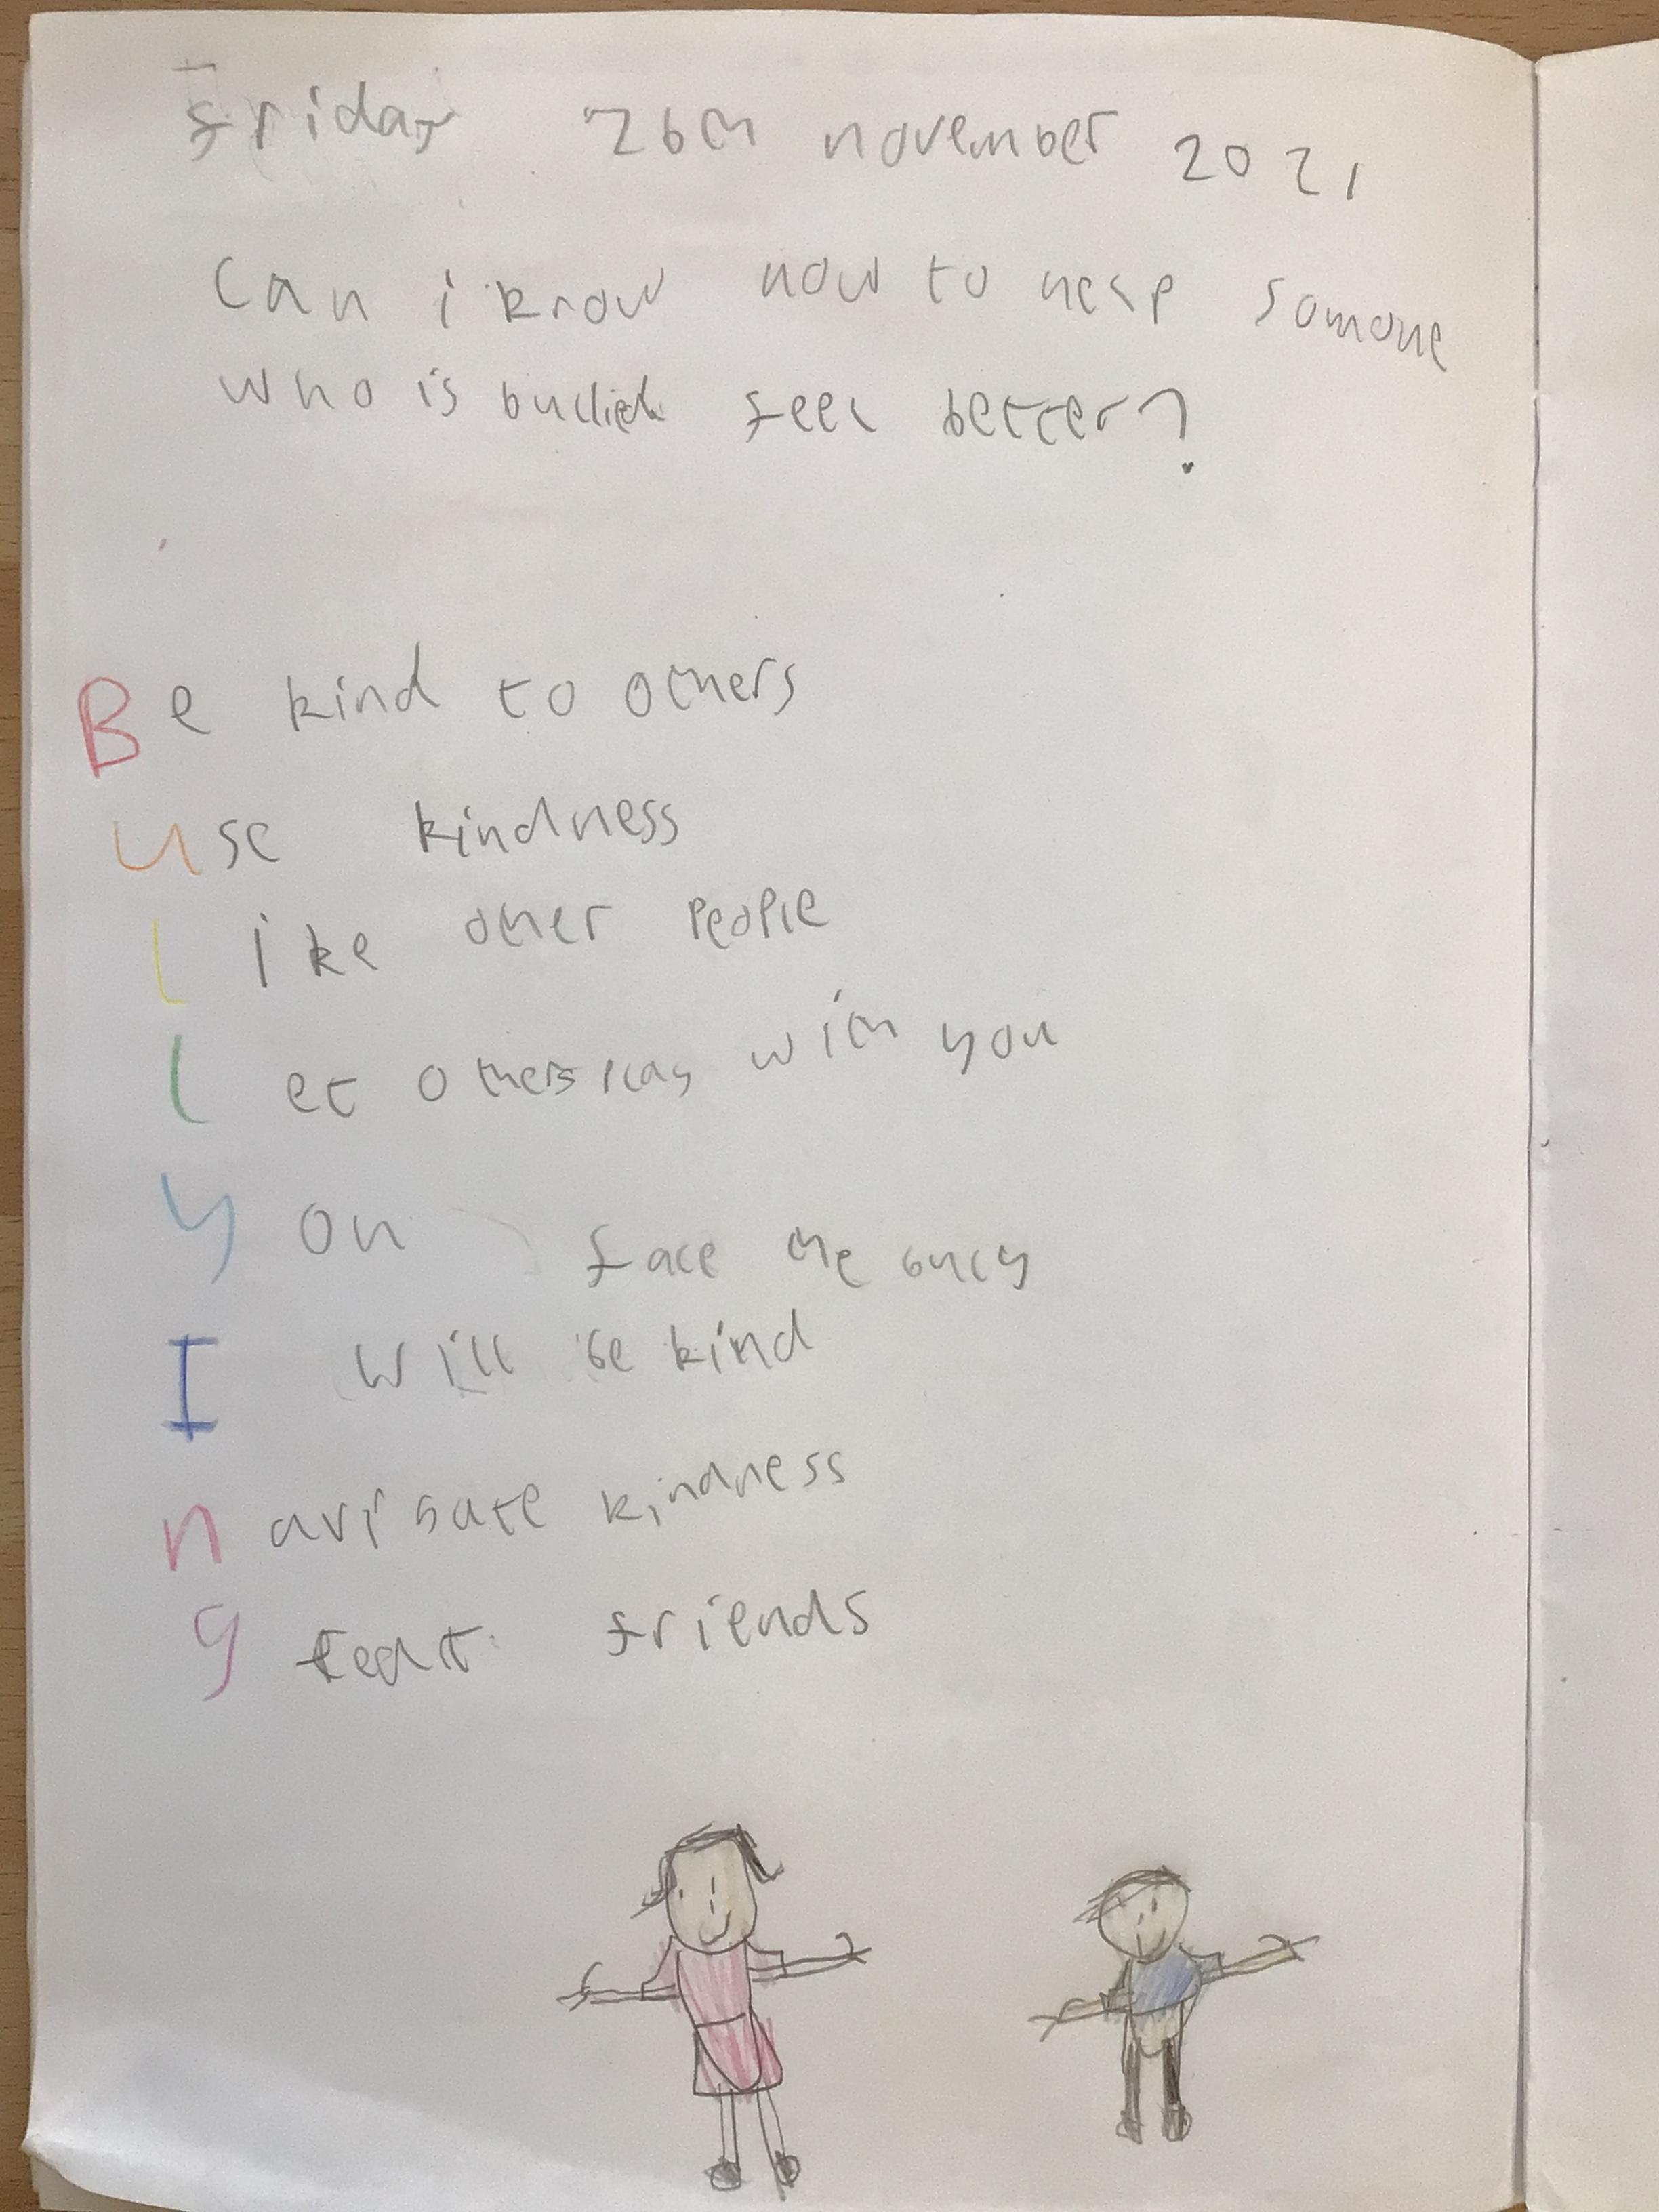 friday 26th november 2021
Can i know how to help somone
who is bullied feel better?
Be kind to others
use kindness
like other people
let others play with you
you face the bully
I will be kind
navigate kindness
great friends